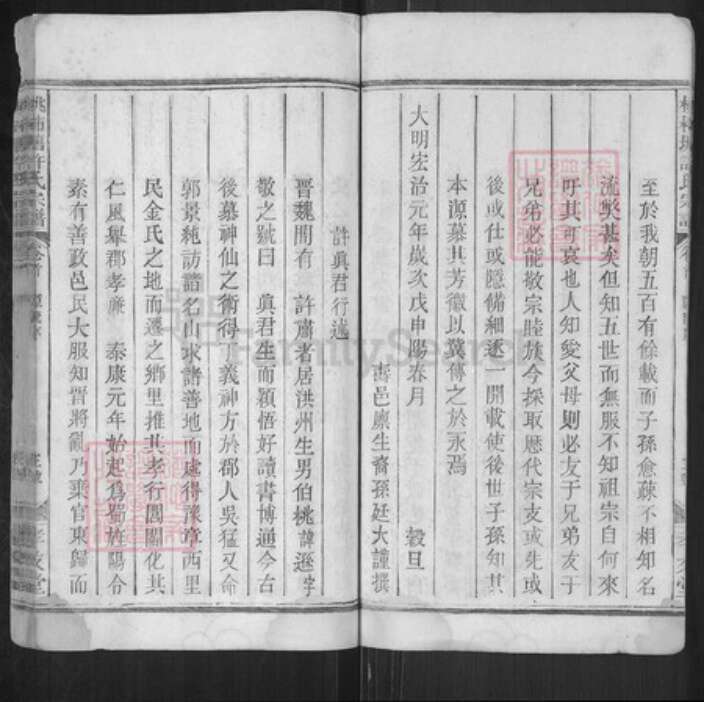 至於我朝五百有餘載而子孫愈疎不相知名
流獘甚矣但知五世而無服不知祖宗自何來
吁其可哀也人知愛父母則必友于兄弟友于
兄弟必能敬宗睦族今採取歷代宗支或先或
後或仕或隱備細逐一開載使後世子孫知其
本源慕其芳徽以冀傳之於永焉
大明宏治元年歲次戊申陽春月 穀旦
壽邑廩生裔孫廷大謹撰
許真君行述
晉魏間有 許肅者居洪州生男伯桃諱遜字
敬之號曰 真君生而穎悟好讀書博通今古
後慕神仙之術得丁義神方於郡人吳猛又命
郭景純訪諸名山求諸善地而處得豫章西里
民金氏之地而遷之鄉里推其孝行閭關化其
仁風舉郡孝廉 泰康元年始起為蜀旌陽令
素有善政邑民大服知晉將亂乃棄官東歸而
許氏宗譜
FamilySearch